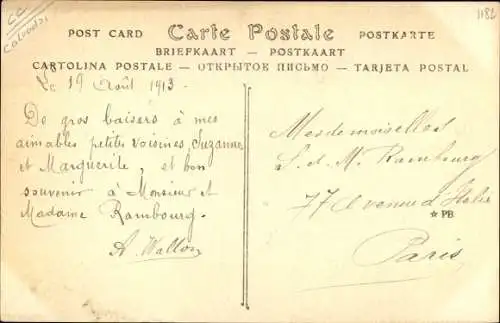 CC
Calvados
1182
POST CARD — Carte Postale — POSTKARTE
BRIEFKAART — POSTKAART
CARTOLINA POSTALE — ОТКРЫТОЕ ПИСЬМО — TARJETA POSTAL
Le 19 Août 1913.
De gros baisers à mes
aimables petites voisines, Suzanne
et Marguerite, et bon
souvenir à Monsieur et
Madame Rambourg.
A. Wallon
Mesdemoiselles
S. et M. Rambourg
77 Avenue d'Italie
PB
Paris